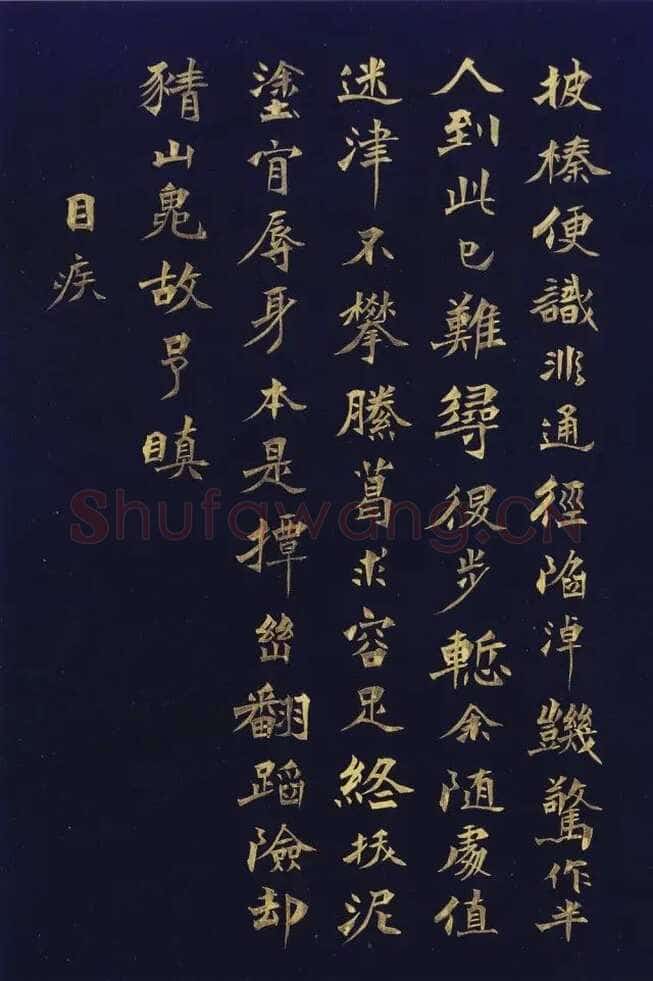 披榛便識非通徑陷淖驚作半
人到此已難尋步慙余随處值
迷津不攀藤葛求容足終抉泥
塗肎辱身本是探幽翻蹈險却
猜山鬼故予瞋
目疾
Shufawang.CN